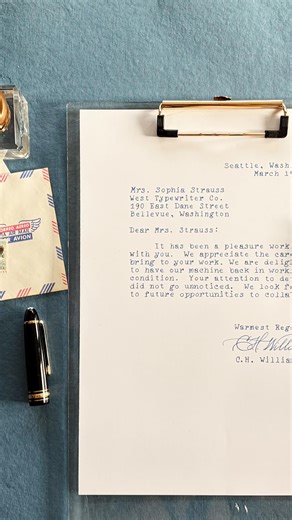 Seattle, Wash
March 1
Mrs. Sophia Strauss
West Typewriter Co.
190 East Dane Street
Bellevue, Washington
Dear Mrs. Strauss:
It has been a pleasure work
with you. We appreciate the car
bring to your work. We are delig
to have our machine back in work
condition. Your attention to de
did not go unnoticed. We look f
to future opportunities to colla
Warmest Reg
C.H. William
AIR MAIL
AVION